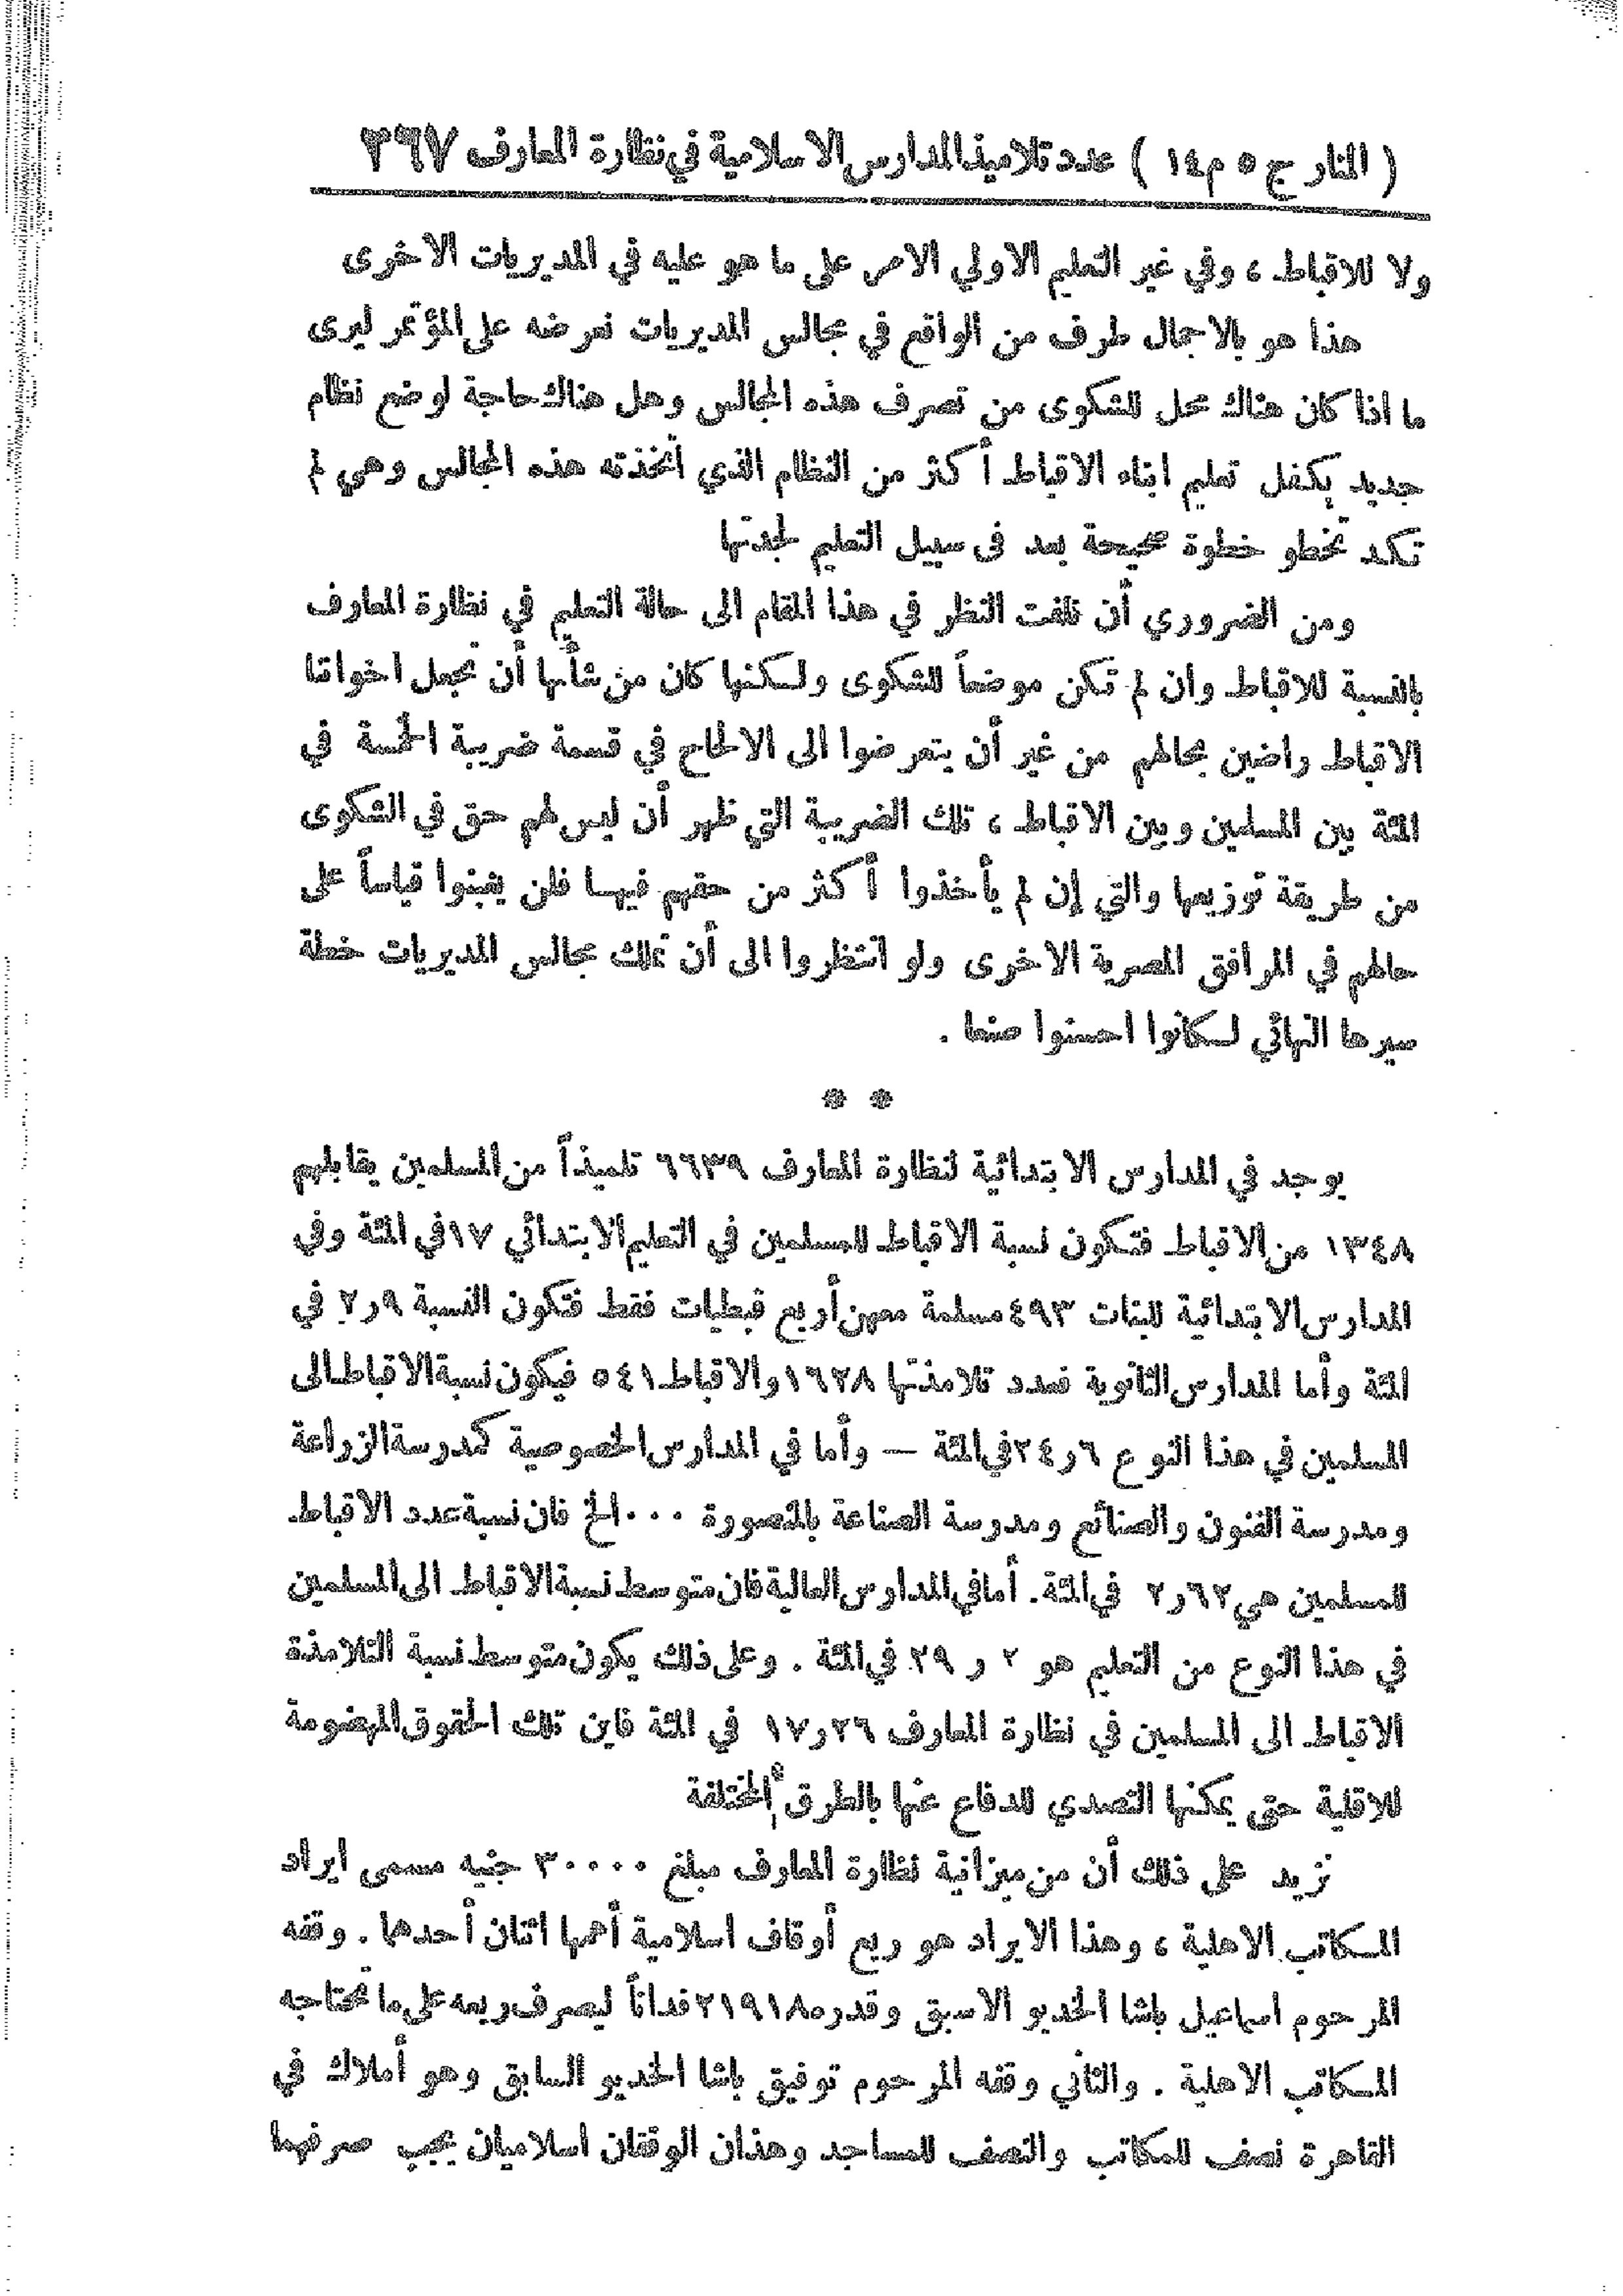 ( المنار ج ٥ م ١٤ ) عدد تلاميذ المدارس الاسلامية في نظارة المعارف ٣٦٧
ولا للاقباط ، وفي غير التعليم الاولي الامر على ما هو عليه في المديريات الاخرى
هذا هو بالاجمال طرف من الواقع في مجالس المديريات نعرضه على المؤتمر ليرى
ما اذا كان هناك محل للشكوى من تصرف هذه المجالس وهل هناك حاجة لوضع نظام
جديد يكفل تعليم ابناء الاقباط أكثر من النظام الذي اتخذته هذه المجالس وهي لم
تكد تخطو خطوة صحيحة بعد فى سبيل التعليم لجدتها
ومن الضروري أن نلفت النظر في هذا المقام الى حالة التعليم في نظارة المعارف
بالنسبة للاقباط وان لم تكن موضعاً للشكوى ولكنها كان من شأنها أن تجعل اخواننا
الاقباط راضين بحالهم من غير أن يتعرضوا الى الالحاح في قسمة ضريبة الخمسة في
المئة بين المسلمين وبين الاقباط ، تلك الضريبة التي ظهر أن ليس لهم حق في الشكوى
من طريقة توزيعها والتي إن لم يأخذوا أكثر من حقهم فيها فلن يغبنوا قياساً على
حالهم في المرافق المصرية الاخرى ولو انتظروا الى أن تملك مجالس المديريات خطة
سيرها النهائي لكانوا احسنوا صنعا .
* *
يوجد في المدارس الابتدائية لنظارة المعارف ٦٦٣٩ تلميذاً من المسلمين يقابلهم
١٣٤٨ من الاقباط فتكون نسبة الاقباط للمسلمين في التعليم الابتدائي ١٧ في المئة وفي
المدارس الابتدائية للبنات ٤٩٣ مسلمة معهن أربع قبطيات فقط فتكون النسبة ٩ر٢ في
المئة وأما المدارس الثانوية فعدد تلامذتها ١٦٢٨ والاقباط ٥٤١ فيكون نسبة الاقباط الى
المسلمين في هذا النوع ٦ر٢٤ في المئة — وأما في المدارس الخصوصية كمدرسة الزراعة
ومدرسة الفنون والصنائع ومدرسة الصناعة بالمنصورة ٠٠٠ الخ فان نسبة عدد الاقباط
للمسلمين هي ٦٢ر٢ في المئة. أما في المدارس العالية فان متوسط نسبة الاقباط الى المسلمين
في هذا النوع من التعليم هو ٢ ر ٢٩ في المئة . وعلى ذلك يكون متوسط نسبة التلامذة
الاقباط الى المسلمين في نظارة المعارف ٢٦ر١٧ في المئة فاين تلك الحقوق المهضومة
للاقلية حتى يمكنها التصدي للدفاع عنها بالطرق المختلفة
نزيد على ذلك أن من ميزانية نظارة المعارف مبلغ ٣٠٠٠٠ جنيه مسمى ايراد
المكاتب الاهلية ، وهذا الايراد هو ريع أوقاف اسلامية أهمها اثنان أحدهما . وقفه
المرحوم اسماعيل باشا الخديو الاسبق وقدره ٢١٩١٨ فداناً ليصرف ريعه على ما تحتاجه
المكاتب الاهلية . والثاني وقفه المرحوم توفيق باشا الخديو السابق وهو أملاك في
القاهرة نصف للمكاتب والنصف للمساجد وهذان الوقفان اسلاميان يجب صرفهما